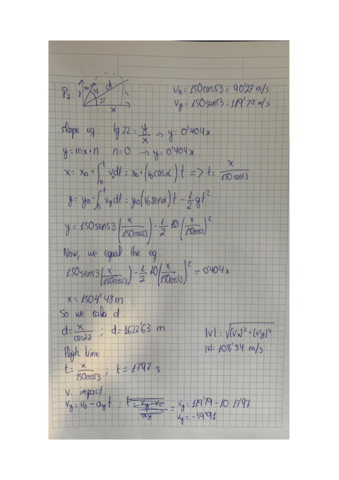 P2:
d
22
x
Vx = 150cos53 = 90'27 m/s
Vy = 150sen53 = 119'79 m/s
slope eq tg22 = y/x → y = 0'404x
y = mx+n n=0 → y = 0'404x
x = x0 + ∫ vx dt = x0 + (v0 cosα) t => t = x/150cos53
y = y0 + ∫ vy dt = y0 (v0 senα) t - 1/2 gt²
y = 150sen53 (x/150cos53) - 1/2 10 (x/150cos53)²
Now, we equal the eq
150sen53 (x/150cos53) - 1/2 10 (x/150cos53)² = 0'404x
x = 1504'48 m
So we calc d
d = x/cos22 ; d = 1622'63 m
|v| = √(Vx)² + (Vy)²
|v| = 108'34 m/s
flight time
t = x/150cos53 ; t = 17'97 s
v. impact
Vy = V0 - ay t
= Vy = 119'79 - 10·17'97
Vy = -59'91